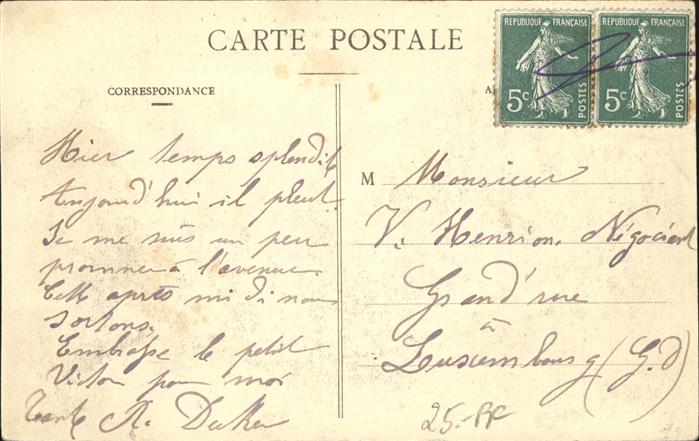 CARTE POSTALE
REPUBLIQUE FRANÇAISE
5c
POSTES
REPUBLIQUE FRANÇAISE
5c
POSTES
CORRESPONDANCE
Hier temps splendide
Aujourd'hui il pleut.
Je me suis un peu
promener à l'avenue
Cett après midi nous
sortons.
Embrasse le petit
Victor pour moi
Tante A.
M Monsieur
V. Henrion, Négociant
Grand'rue
à
Louxembourg (G.D)
25.- BF